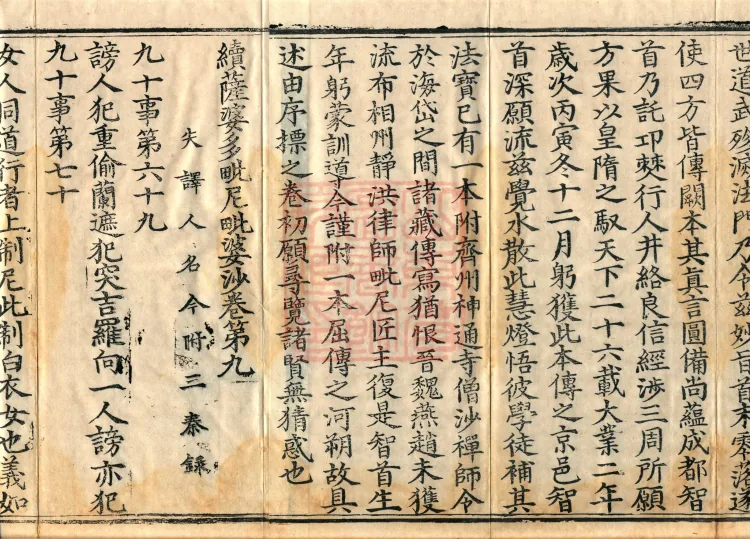 世道武殘滅法門乃令茲妙旨首末零落遂
使四方皆傳闕本其眞言圓備尚蘊成都智
首乃託卭僰行人井絡良信經涉三周所願
方果以皇隋之馭天下二十六載大業二年
歲次丙寅冬十二月躬獲此本傳之京邑智
首深願流茲覺水散此慧燈悟彼學徒補其
法寶已有一本附齊州神通寺僧沙禪師令
於海岱之間諸藏傳寫猶恨晉魏燕趙未獲
流布相州靜洪律師毗尼匠主復是智首生
年躬蒙訓導今謹附一本屈傳之河朔故具
述由序摽之卷初願尋覽諸賢無猜惑也
續薩婆多毗尼毗婆沙卷第九
失譯人名今附三秦錄
九十事第六十九
謗人犯重偷蘭遮犯突吉羅向一人謗亦犯
九十事第七十
女人同道行者上制尼此制白衣女也義如